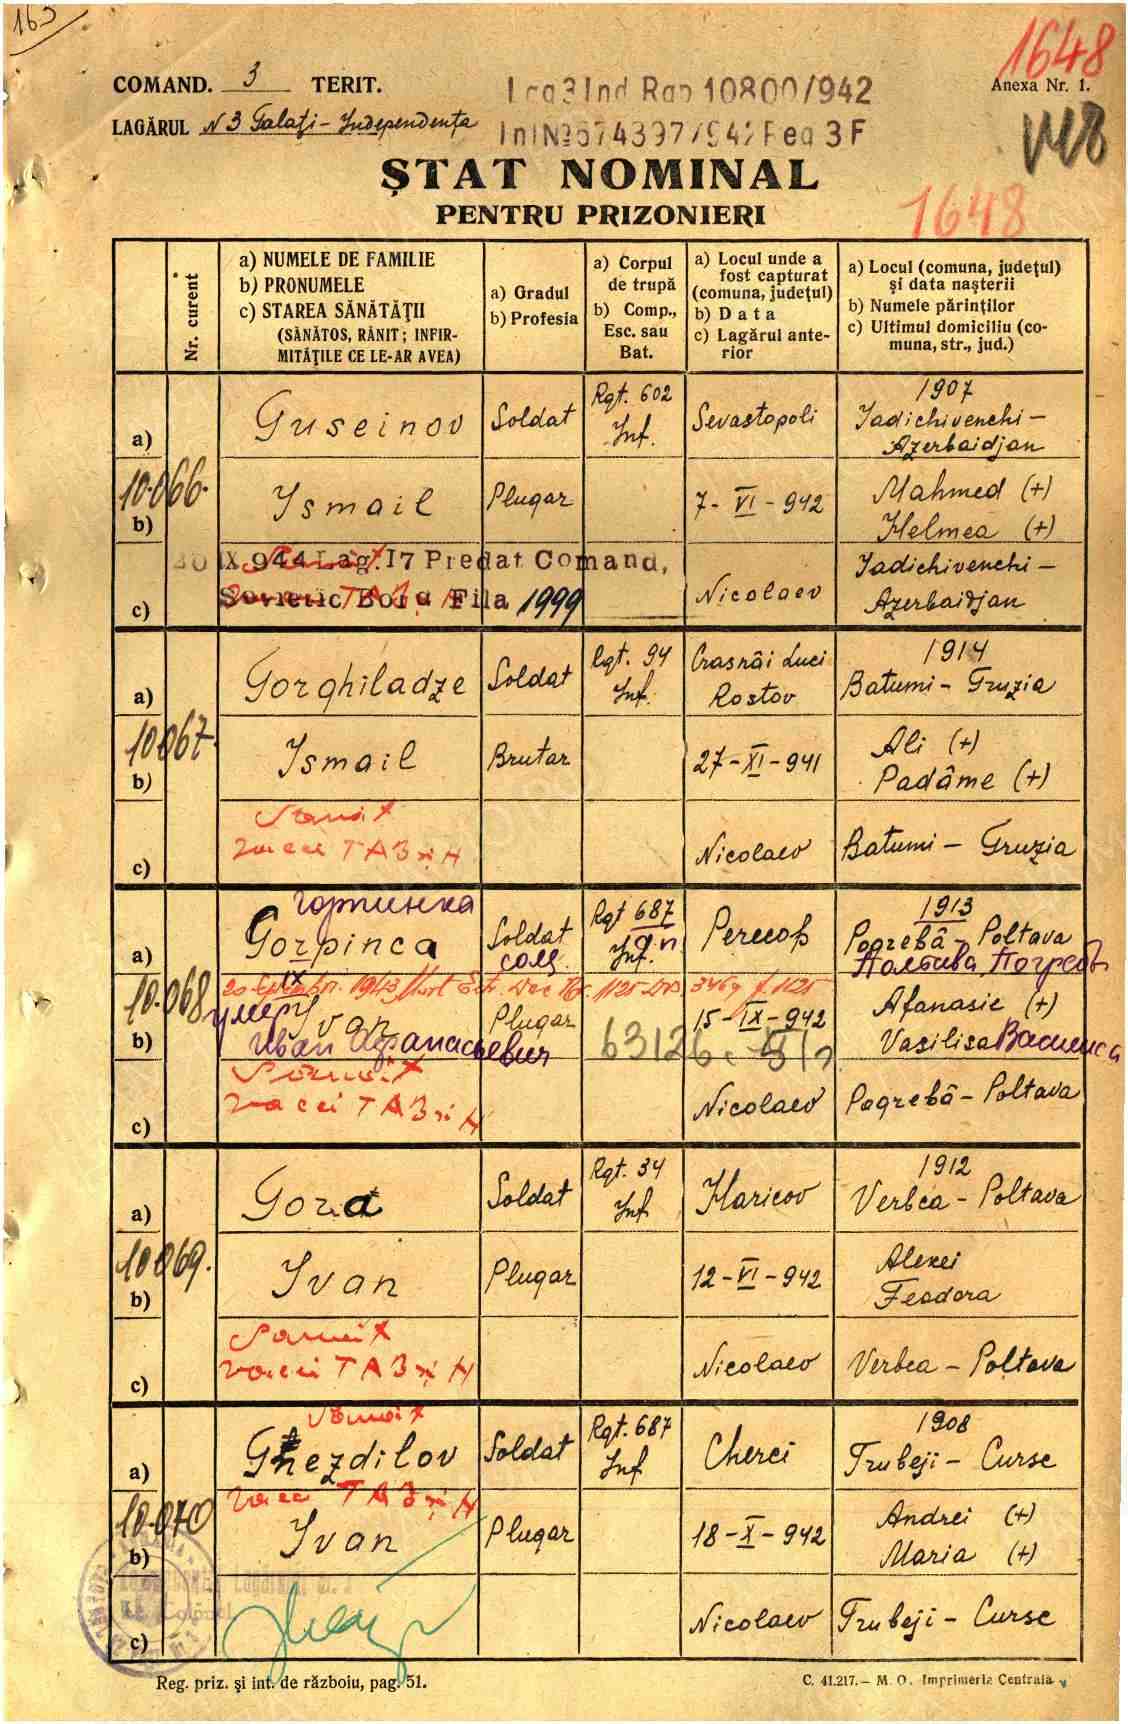 163
1648
COMAND. 3 TERIT.
Anexa Nr. 1.
LAGĂRUL N 3 Galați - Independența
10800/942
ȘTAT NOMINAL
PENTRU PRIZONIERI
1648
Nr. curent
a) NUMELE DE FAMILIE
b) PRONUMELE
c) STAREA SĂNĂTĂȚII
(SĂNĂTOS, RĂNIT; INFIR-
MITĂȚILE CE LE-AR AVEA)
a) Gradul
b) Profesia
a) Corpul
de trupă
b) Comp.,
Esc. sau
Bat.
a) Locul unde a
fost capturat
(comuna, județul)
b) Data
c) Lagărul ante-
rior
a) Locul (comuna, județul)
și data nașterii
b) Numele părinților
c) Ultimul domiciliu (co-
muna, str., jud.)
10.066.
a) Guseinov Soldat Rgt. 602 Inf. Sevastopoli 1907 Iadichivenchi - Azerbaidjan
b) Ismail Plugar 7-VI-942 Mahmed (+)
Helmea (+)
IX.944 Lag. 17 Predat Comand,
Sovietic Fila 1999
c) Nicolaev Iadichivenchi -
Azerbaidjan
10.067.
a) Gorghiladze Soldat Rgt. 94 Inf. Crasnâi Luci Rostov 1914 Batumi - Gruzia
b) Ismail Brutar 27-XI-941 Ali (+)
Padâme (+)
vacci TAB și H
c) Nicolaev Batumi - Gruzia
10.068
Горпинка
a) Gorpinca Soldat Rgt 687 Inf. Perecop 1913 Pogrebâ - Poltava
сол. Полтава Погребы
умер
b) Ivan Plugar 15-IX-942 Afanasie (+)
Иван Афанасьевич 63126 Vasilisa Василиса
vacci TAB și H
c) Nicolaev Pogrebâ - Poltava
10.069.
a) Gora Soldat Rgt. 34 Inf Haricov 1912 Verbca - Poltava
b) Ivan Plugar 12-VI-942 Alexei
Feodora
vacci TAB și H
c) Nicolaev Verbca - Poltava
10.070
a) Ghezdilov Soldat Rgt. 687 Inf Cherci 1908 Trubeji - Cursc
vacci TAB și H
b) Ivan Plugar 18-X-942 Andrei (+)
Maria (+)
c) Nicolaev Trubeji - Cursc
Reg. priz. și int. de război, pag. 51.
C. 41.217. - M. O. Imprimeria Centrala